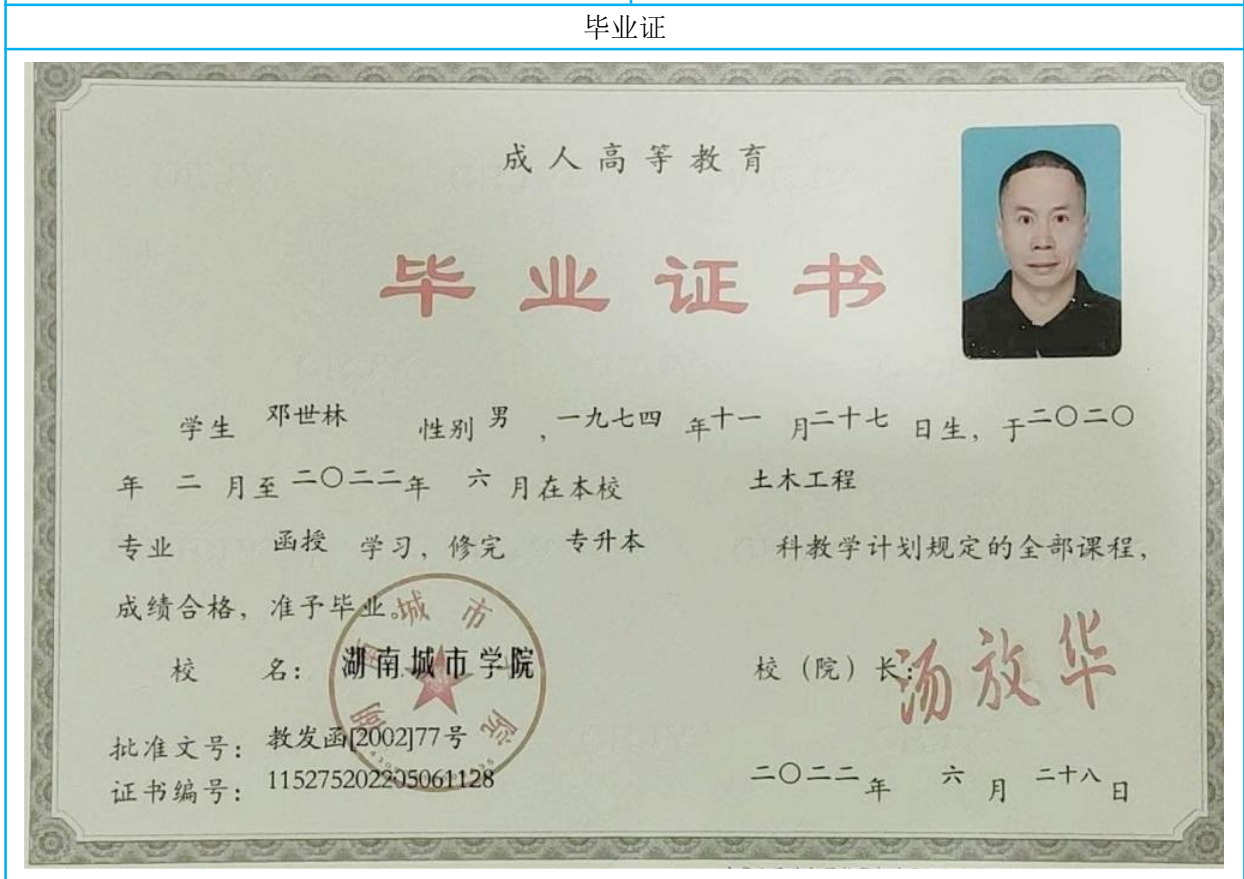 毕业证
成人高等教育
毕业证书
学生 邓世林 性别 男 ,一九七四 年十一 月二十七 日生, 于二〇二〇
年 二 月至 二〇二二年 六 月在本校 土木工程
专业 函授 学习, 修完 专升本 科教学计划规定的全部课程,
成绩合格, 准予毕业。
校 名: 湖南城市学院 校（院）长: 汤放华
湖南城市学院
批准文号: 教发函[2002]77号
证书编号: 115275202205061128 二〇二二年 六 月 二十八 日